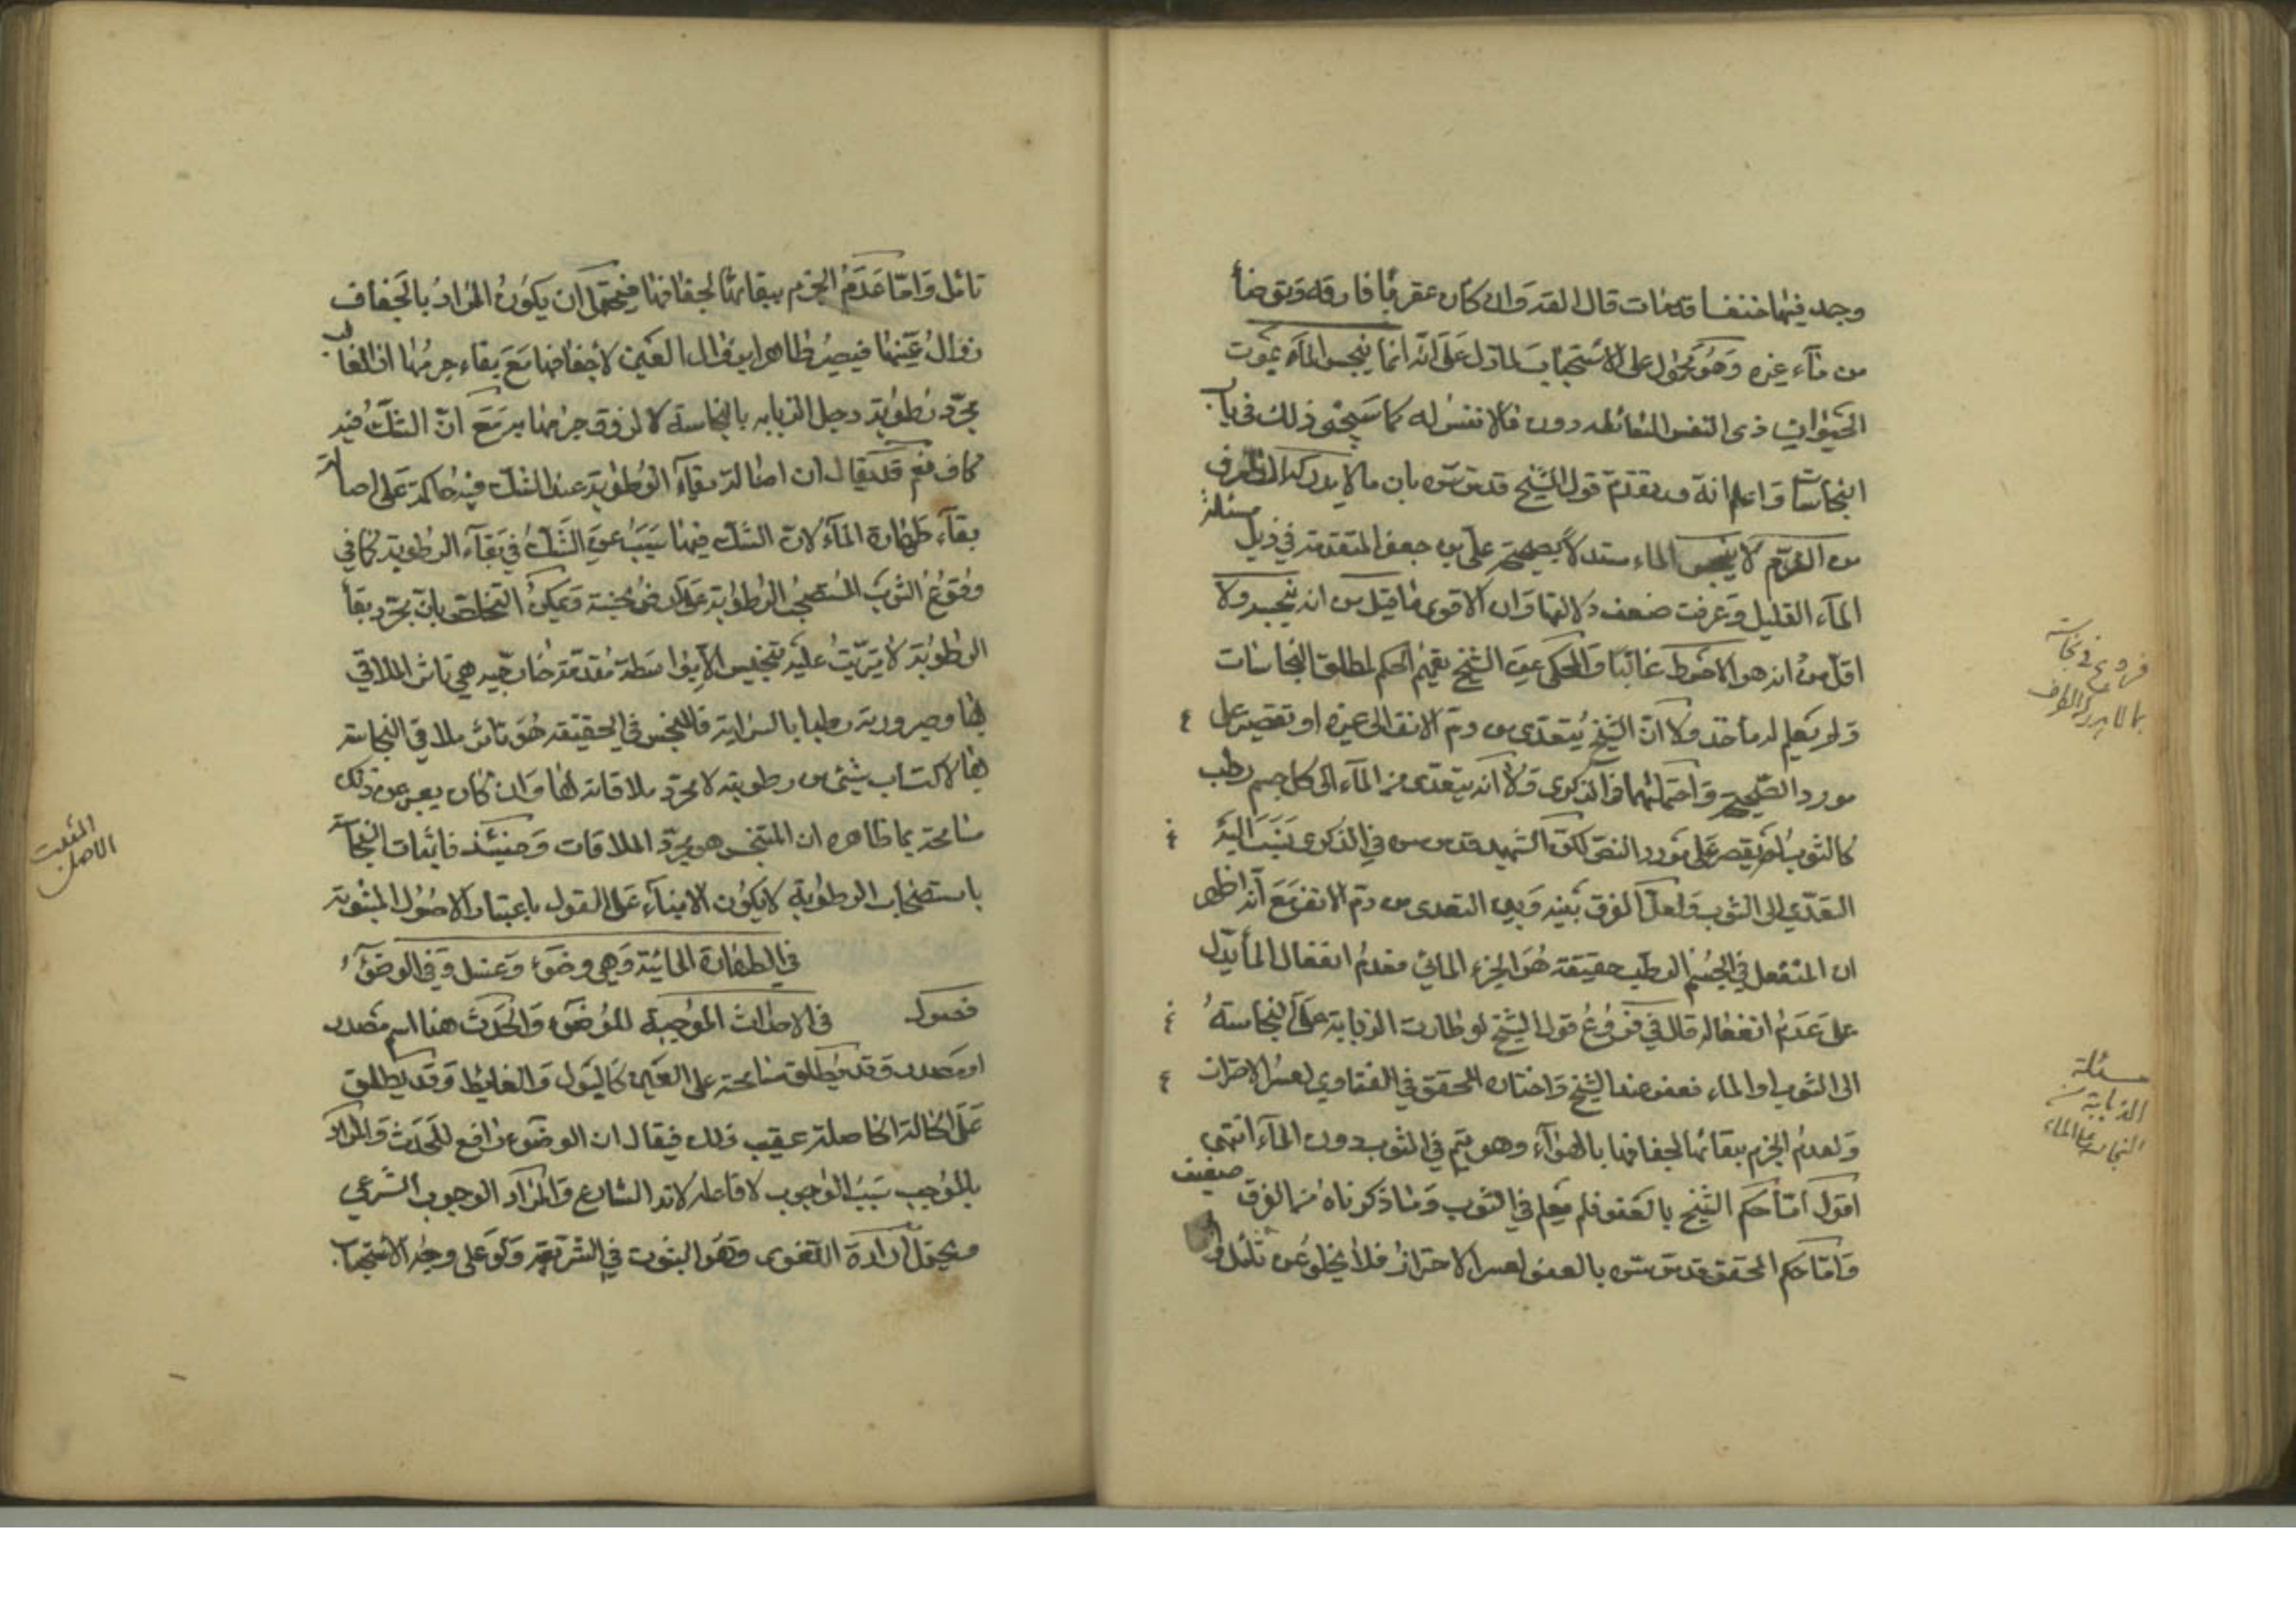 وجد فيها خنفسا قد مات قال القه وان كان عقربا فارقه وتوضأ
من ماء غيره وهو محمول على الاستحباب لما دل على انه انما ينجس الماء بموت
الحيوان ذى النفس السائله دون مالا نفس له كما سيجئ ذلك في باب
النجاسات واعلم انه قد تقدم قول الشيخ قدس سره بان مالا يدركه الطرف
من الدم لا ينجس الماء مستدلا بصحيحة علي بن جعفر المتقدمة في ذيل مسئلة
الماء القليل وعرفت ضعف دلالتها وان الاقوى ما قيل من انه ينجسه ولا
اقل من انه هو الاحوط غالبا والمحكى عن الشيخ تعميم الحكم لمطلق النجاسات
ولم يعلم له مأخذ ولا ان الشيخ يتعدى من دم الانف الى غيره او يقتصر على
مورد الصحيح واحتملهما في الذكرى ولا انه يتعدى من الماء الى كل جسم رطب
كالثوب او يقتصر على مورد النص لكن الشهيد قدس سره في الذكرى ينسب اليه
التعدى الى الثوب ولعل الفرق بينه وبين التعدى من دم الانف مع انه اظهر
ان المنفعل في الجسم الرطب حقيقة هو الجزء المائي فعدم انفعال الماء يدل
على عدم انفعاله قال في فروع قول الشيخ لو طارت الذبابة عن النجاسة
الى الثوب او الماء فعفو عند الشيخ واختاره المحقق في الفتاوي لعسر الاحتراز
ولعدم الجزم ببقائها لجفافها بالهواء وهو يتم في الثوب دون الماء انتهى
اقول اما حكم الشيخ بالعفو فلم يعلم في الثوب وما ذكرناه من الفرق ضعيف
واما حكم المحقق قدس سره بالعفو لعسر الاحتراز فلا يخلو عن تأمل
فروع في نجاسة
مالا يدركه الطرف
مسئلة
الذبابة
النجاسة على الماء
تأمل واما عدم الجزم ببقائها لجفافها فيحتمل ان يكون المراد بالجفاف
زوال عينها فيصير طاهرا بزوال العين لا جفافها مع بقاء جرمها اذ الغالب
مجرد رطوبة رجل الذبابة بالنجاسة لا لزوق جرمها به مع ان الشك فيه
كاف نعم قد يقال ان اصالة بقاء الرطوبة عند الشك فيه حاكمة على اصالة
بقاء طهارة الماء لان الشك فيها سبب عن الشك في بقاء الرطوبة كما في
وقوع الثوب المستصحب الرطوبة على ارض نجسة ويمكن التخلص بان مجرد بقاء
الرطوبة لا يترتب عليه تنجيس الا بواسطة مقدمة خارجيه هي تاثر الملاقي
لها وصيرورته رطبا بالسراية فالنجس في الحقيقة هو تاثر ملاقي النجاسة
بها لاكتساب شيئ من رطوبته لا مجرد ملاقاته لها وان كان يعبر عن ذلك
مسامحة بما ظاهره ان المنجس هو مجرد الملاقات وحينئذ فاثبات النجاسة
باستصحاب الرطوبة لا يكون الا بناء على القول باعتبار الاصول المثبوته
في الطهارة المائية وهي وضوء وغسل وفي الوضوء
فصول في الاحداث الموجبة للوضوء والحدث هنا اسم مصدر
او مصدر وقد يطلق مسامحة على العين كالبول والغايط وقد يطلق
على الحالة الحاصلة عقيب ذلك فيقال ان الوضوء رافع للحدث والمراد
بالموجب سبب الوجوب لا فاعله لانه الشارع والمراد الوجوب الشرعي
ويحتمل ارادة اللغوى وهو الثبوت في الشريعة ولو على وجه الاستحباب
المثبت
الاصل